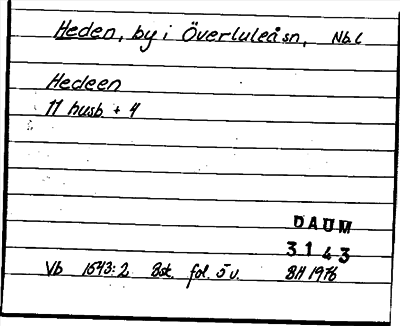 Heden, by i Överluleå sn, Nb.l
Hedeen
11 husb. + 4
DAUM
3143
Vb 1543:2 8st. fol. 5 v. BH 1976